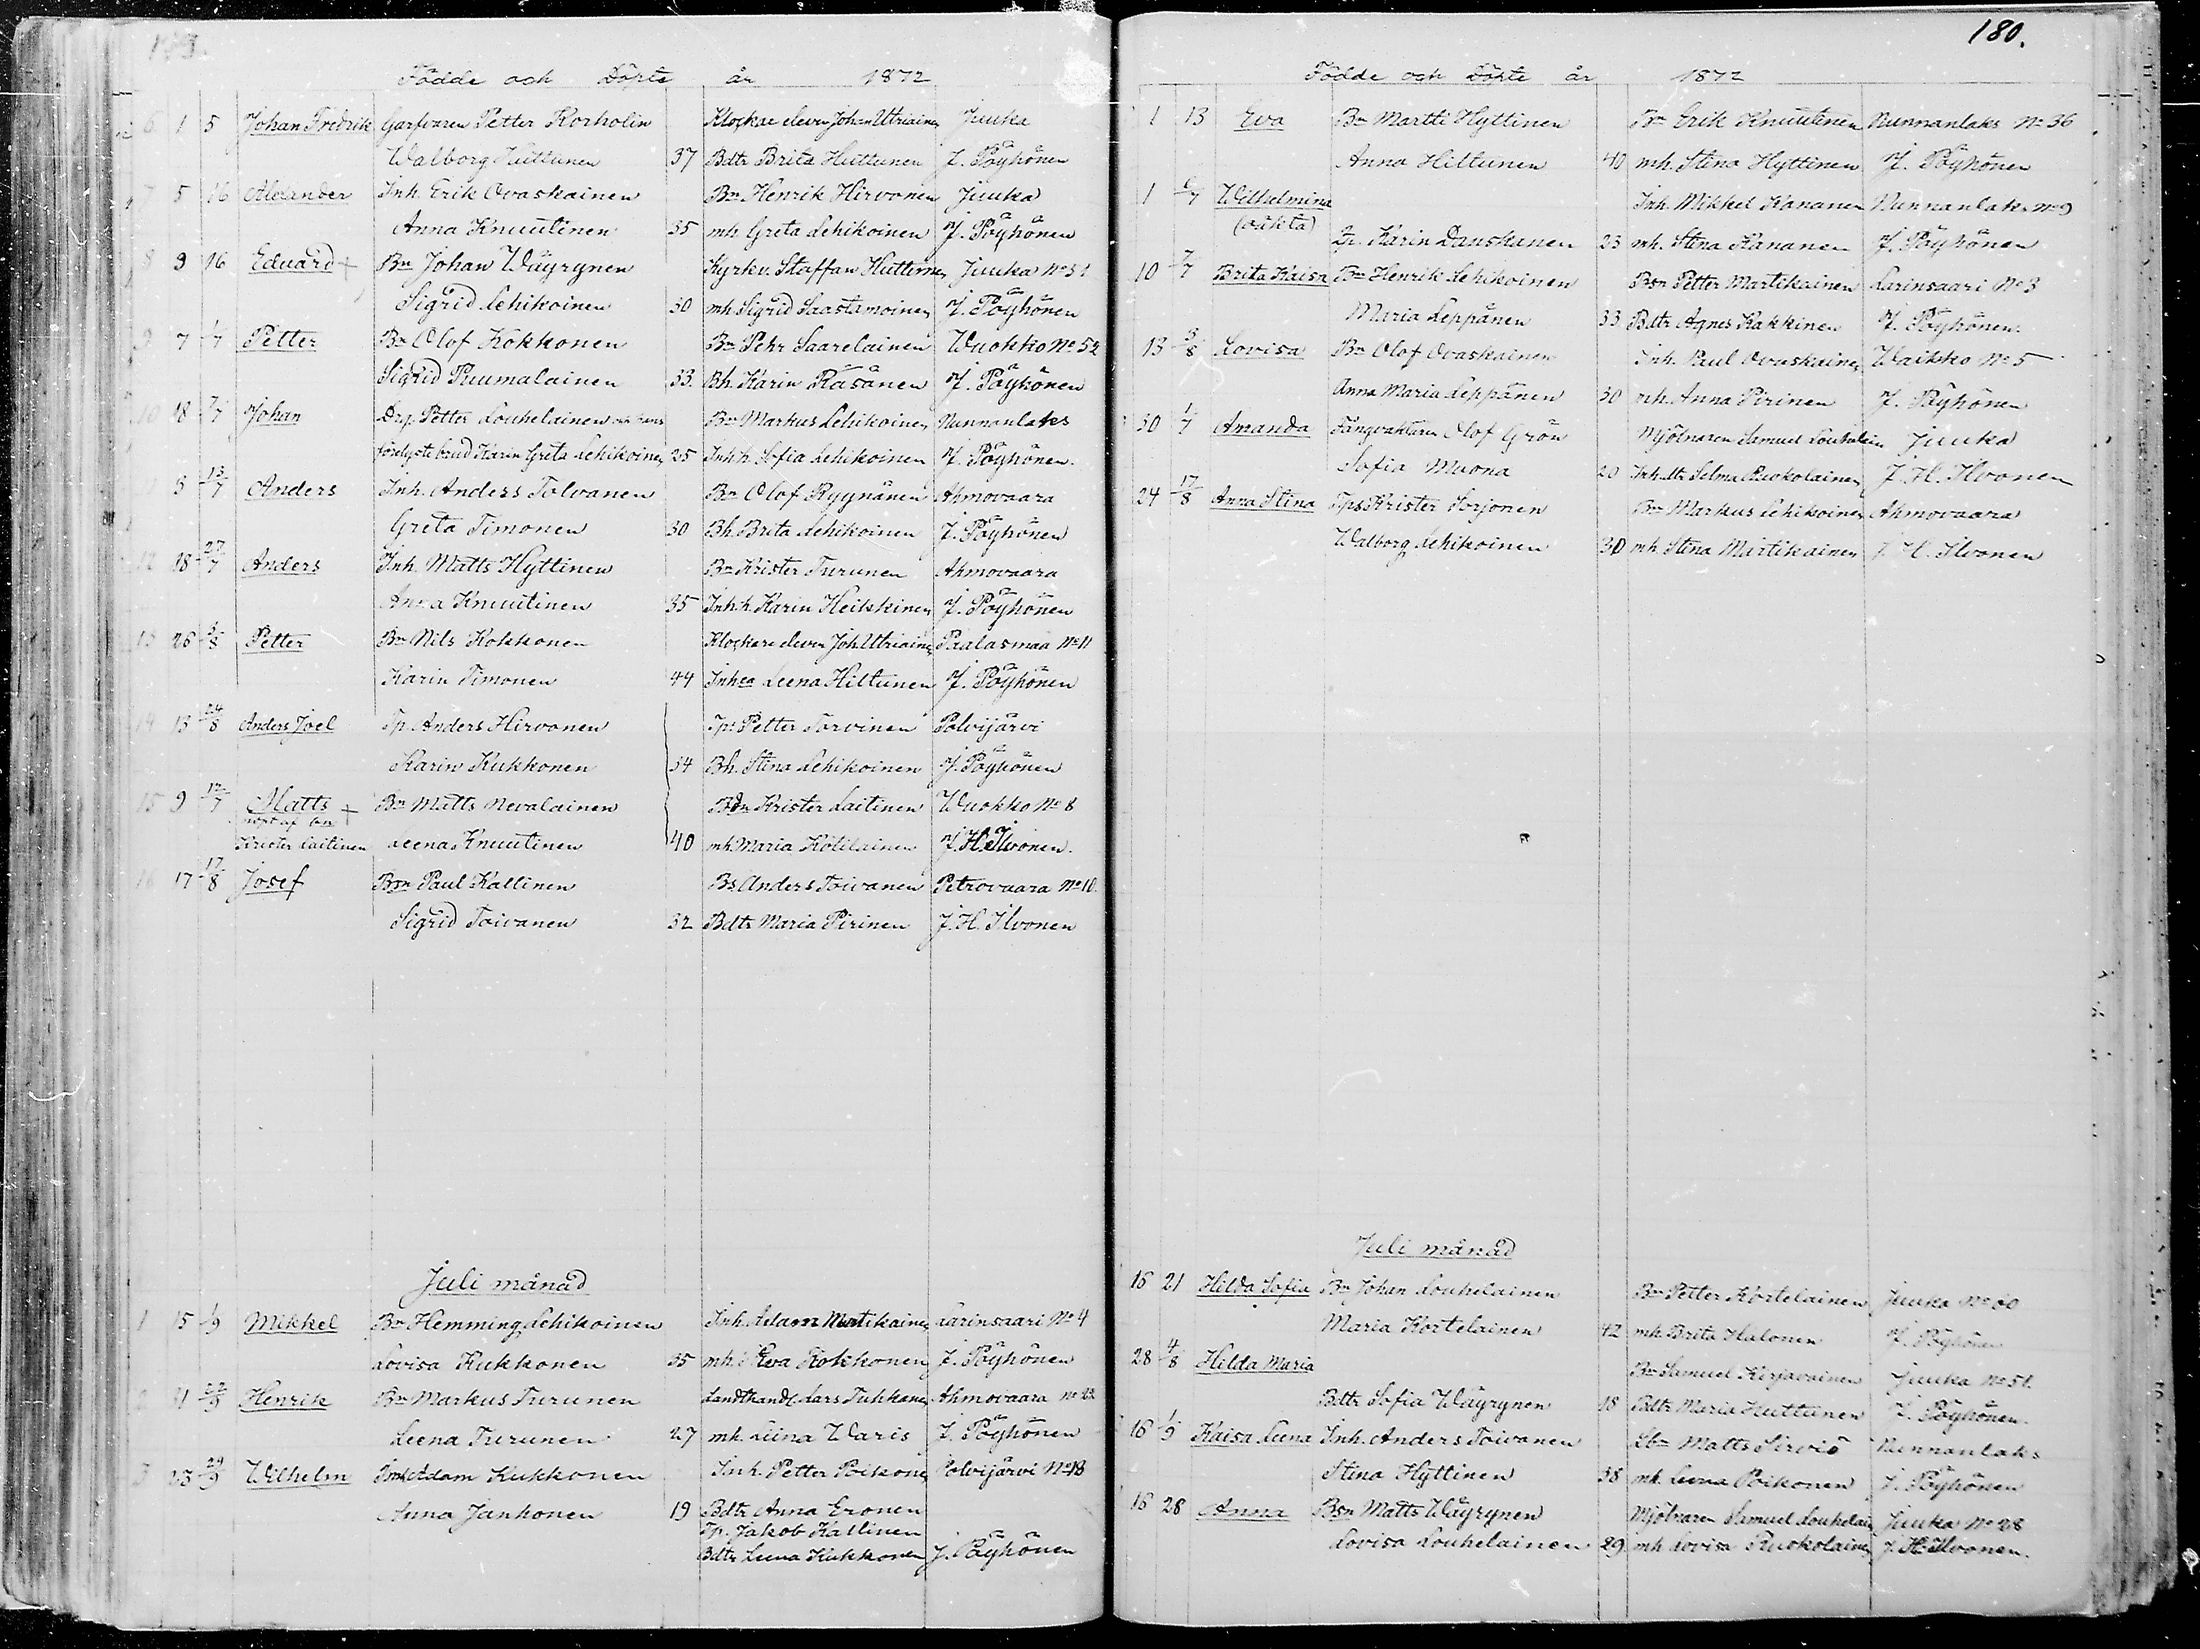 Födde och Döpte år 1872
6 1 5 Johan Fredrik Garfvaren Petter Korholin Klockare eleven Johan Uttriainen Juuka
Walborg Huttunen 37 Bdtr Brita Huttunen J. Pöyhönen
7 5 16 Alexander Inh. Erik Ovaskainen Bn Henrik Hirvonen Juuka
Anna Knuutinen 35 mh. Greta Lehikoinen J. Pöyhönen
8 9 16 Eduard + Bn Johan Wäyrynen Kyrkv. Staffan Huttunen Juuka No 51
Sigrid Lehikoinen 30 mh Sigrid Saastamoinen J. Pöyhönen
9 7 1/7 Petter Bn Olof Kokkonen Bn Pehr Saarelainen Wuokko No 52
Sigrid Puumalainen 33. Bh. Karin Räsänen J. Pöyhönen
10 18 7/7 Johan Drg. Petter Louhelainen och hans Bn Markus Lehikoinen Nunnanlaks
förlystebrud Karin Greta Lehikoinen 25 Inh h. Sofia Lehikoinen J. Pöyhönen.
8 13/7 Anders Inh. Anders Tolvanen Bn Olof Ryynänen Ahmovaara
Greta Timonen 30 Bh. Brita Lehikoinen J. Pöyhönen
12 18 27/7 Anders Inh. Matts Hyttinen Bn Krister Turunen Ahmovaara
Anna Knuutinen 35 Inh.h. Karin Heikkinen J. Pöyhönen
13 26 /8 Petter Bn Nils Kokkonen Klockare eleven Joh. Uttriainen Paalasmaa No 11
Karin Timonen 44 Inhea Leena Hiltunen J. Pöyhönen
14 13 24/8 Anders Joel Tp. Anders Hirvonen Tps Petter Torvinen Polvijärvi
Karin Kukkonen 34 Bh. Stina Lehikoinen J. Pöyhönen
15 9 12/7 Matts + Bn Matts Nevalainen Bdn Krister Laitinen Wuokko No 8
Krister Laitinen Leena Knuutinen 40 mh. Maria Kotilainen J. H. Ilvonen.
16 17 17/8 Josef Bsn Paul Kallinen Bs Anders Toivanen Petrovaara No 10.
Sigrid Toivanen 32 Bdtr Maria Pirinen J. H. Ilvonen
Juli månad
1 15 1/9 Mikkel Bn Hemming Lehikoinen Inh. Adam Martikainen Larinsaari No 4
Lovisa Kukkonen 35 mh. Eva Kokkonen J. Pöyhönen
2 21 22/9 Henrik Bn Markus Turunen Landthandl. Lars Tukkanen Ahmovaara No 22
Leena Turunen 27 mh. Liina Waris J. Pöyhönen
3 23 29/9 Wilhelm Inh Adam Kukkonen Inh. Petter Poikonen Polvijärvi No 18
Anna Janhonen 19 Bdtr Anna Eronen
Tp. Jakob Kallinen
Bdtr Leena Kukkonen J. Pöyhönen
180.
Födde och Döpte år 1872
1 13 Eva Bn Martti Hyttinen Bn Erik Knuutinen Nunnanlaks No 36
Anna Hiltunen 40 mh. Stina Hyttinen J. Pöyhönen
1 6/7 Wilhelmina Inh. Mikkel Kananen Nunnanlaks No 9
(oäkta) Karin Danskanen 23 mh. Stina Kananen J. Pöyhönen
10 7/7 Brita Kaisa Bn Henrik Lehikoinen Bsn Petter Martikainen Larinsaari No 3
Maria Leppänen 33 Bdtr Agnes Kakkinen J. Pöyhönen.
13 3/8 Lovisa Bn Olof Ovaskainen Inh. Paul Ovaskainen Waikko No 5
Anna Maria Leppänen 30 mh. Anna Pirinen J. Pöyhönen
30 1/7 Amanda Fångvaktaren Olof Grön Mjölnaren Samuel Louhelain Juuka
Sofia Muona 20 Inh.dtr Selma Ruokolainen J. H. Ilvonen
24 17/8 Anna Stina Tps Krister Sorjonen Bn Markus Lehikoinen Ahmovaara
Walborg Lehikoinen 30 mh. Stina Martikainen J. H. Ilvonen
Juli månad
16 21 Hilda Sofia Bn Johan Louhelainen Bn Petter Kortelainen Juuka No 60
Maria Kortelainen 42 mh. Brita Halonen J. Pöyhönen
28 4/8 Hilda Maria Bn Samuel Kirjavainen Juuka No 51.
Bdtr Sofia Wäyrynen 18 Bdtr Maria Huttunen J. Pöyhönen.
16 1/9 Kaisa Leena Inh. Anders Toivanen Lbn Matts Sirviö Nunnanlaks
Stina Hyttinen 38 mh. Leena Poikonen J. Pöyhönen
16 28 Anna Bsn Matts Wäyrynen Mjölnaren Samuel Louhelain Juuka No 28
Lovisa Louhelainen 29 mh Lovisa Ruokolainen J. H. Ilvonen.